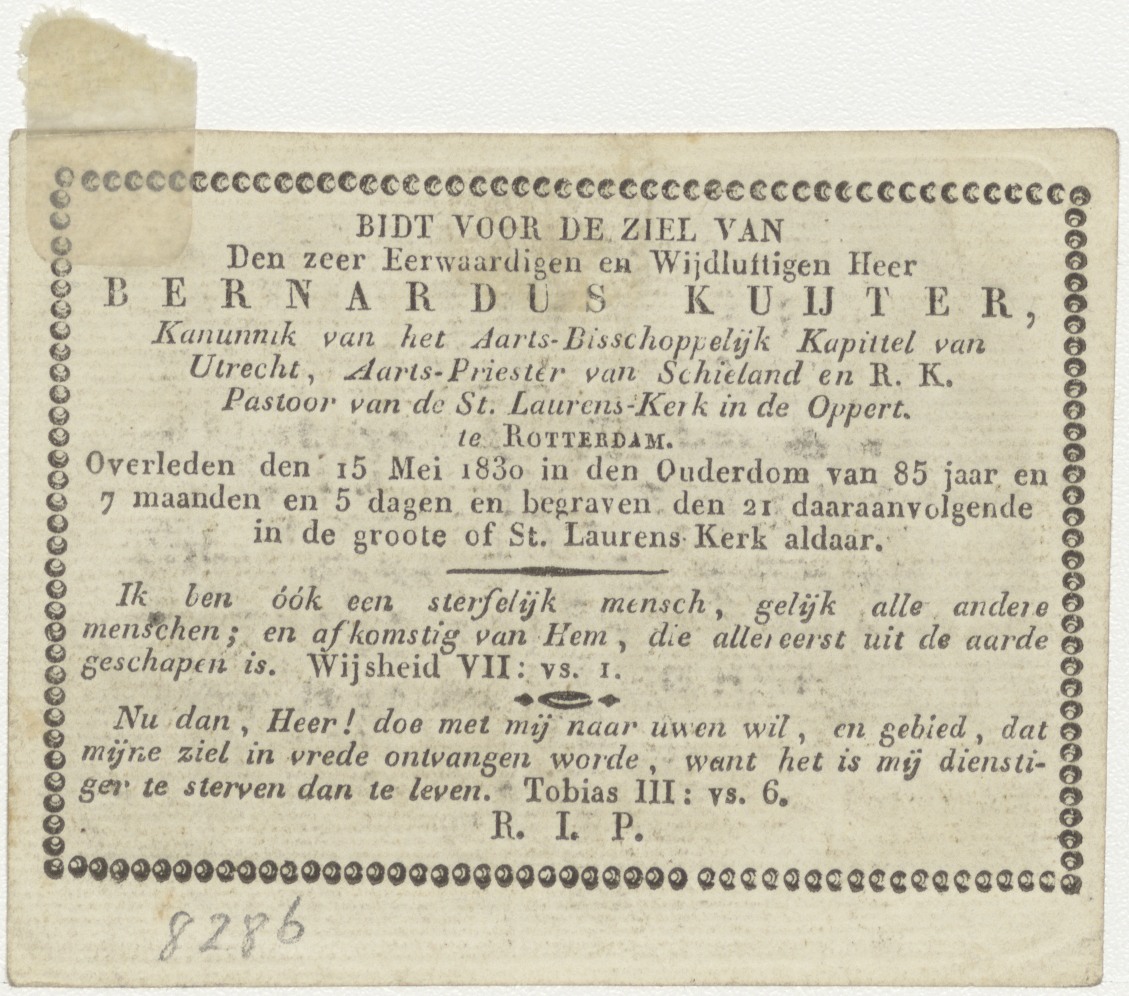 BIDT VOOR DE ZIEL VAN
Den zeer Eerwaardigen en Wijdluftigen Heer
BERNARDUS KUIJTER,
Kanunnik van het Aarts-Bisschoppelijk Kapittel van
Utrecht, Aarts-Priester van Schieland en R. K.
Pastoor van de St. Laurens-Kerk in de Oppert.
te ROTTERDAM.
Overleden den 15 Mei 1830 in den Ouderdom van 85 jaar en
7 maanden en 5 dagen en begraven den 21 daaraanvolgende
in de groote of St. Laurens Kerk aldaar.
Ik ben óók een sterfelijk mensch, gelijk alle andere
menschen; en afkomstig van Hem, die allereerst uit de aarde
geschapen is. Wijsheid VII: vs. 1.
Nu dan, Heer! doe met mij naar uwen wil, en gebied, dat
mijne ziel in vrede ontvangen worde, want het is mij diensti-
ger te sterven dan te leven. Tobias III: vs. 6.
R. I. P.
8286